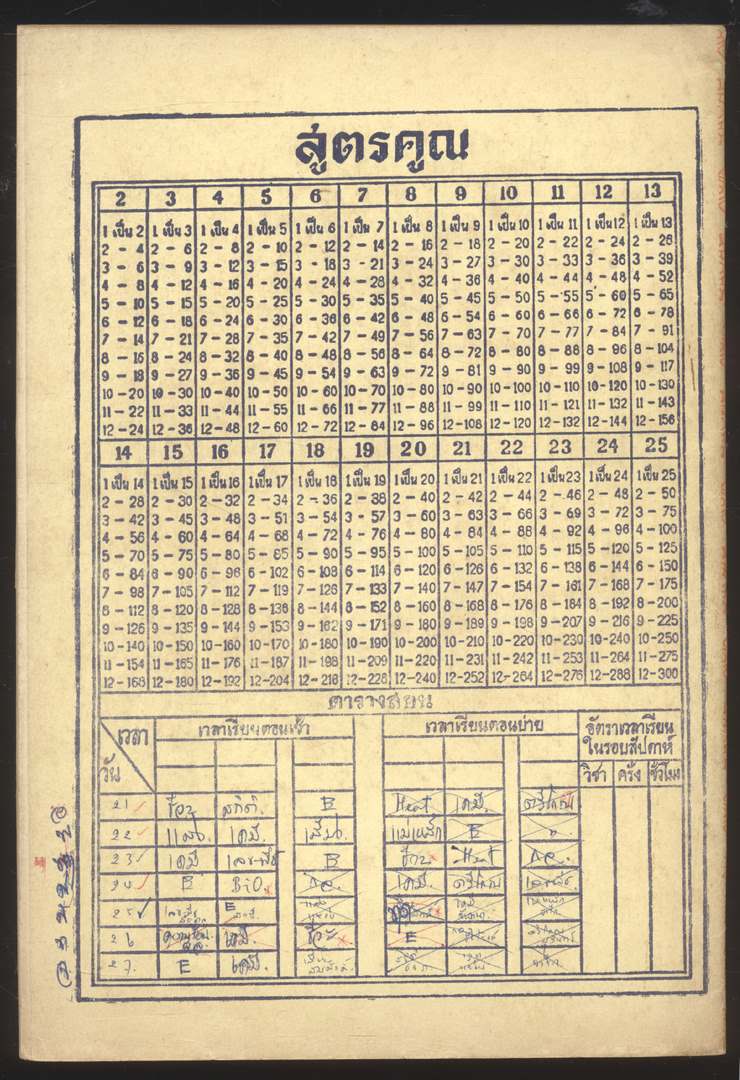 สูตรคูณ
2 3 4 5 6 7 8 9 10 11 12 13
1 เป็น 2 1 เป็น 3 1 เป็น 4 1 เป็น 5 1 เป็น 6 1 เป็น 7 1 เป็น 8 1 เป็น 9 1 เป็น 10 1 เป็น 11 1 เป็น 12 1 เป็น 13
2 - 4 2 - 6 2 - 8 2 - 10 2 - 12 2 - 14 2 - 16 2 - 18 2 - 20 2 - 22 2 - 24 2 - 26
3 - 6 3 - 9 3 - 12 3 - 15 3 - 18 3 - 21 3 - 24 3 - 27 3 - 30 3 - 33 3 - 36 3 - 39
4 - 8 4 - 12 4 - 16 4 - 20 4 - 24 4 - 28 4 - 32 4 - 36 4 - 40 4 - 44 4 - 48 4 - 52
5 - 10 5 - 15 5 - 20 5 - 25 5 - 30 5 - 35 5 - 40 5 - 45 5 - 50 5 - 55 5 - 60 5 - 65
6 - 12 6 - 18 6 - 24 6 - 30 6 - 36 6 - 42 6 - 48 6 - 54 6 - 60 6 - 66 6 - 72 6 - 78
7 - 14 7 - 21 7 - 28 7 - 35 7 - 42 7 - 49 7 - 56 7 - 63 7 - 70 7 - 77 7 - 84 7 - 91
8 - 16 8 - 24 8 - 32 8 - 40 8 - 48 8 - 56 8 - 64 8 - 72 8 - 80 8 - 88 8 - 96 8 - 104
9 - 18 9 - 27 9 - 36 9 - 45 9 - 54 9 - 63 9 - 72 9 - 81 9 - 90 9 - 99 9 - 108 9 - 117
10 - 20 10 - 30 10 - 40 10 - 50 10 - 60 10 - 70 10 - 80 10 - 90 10 - 100 10 - 110 10 - 120 10 - 130
11 - 22 11 - 33 11 - 44 11 - 55 11 - 66 11 - 77 11 - 88 11 - 99 11 - 110 11 - 121 11 - 132 11 - 143
12 - 24 12 - 36 12 - 48 12 - 60 12 - 72 12 - 84 12 - 96 12 - 108 12 - 120 12 - 132 12 - 144 12 - 156
14 15 16 17 18 19 20 21 22 23 24 25
1 เป็น 14 1 เป็น 15 1 เป็น 16 1 เป็น 17 1 เป็น 18 1 เป็น 19 1 เป็น 20 1 เป็น 21 1 เป็น 22 1 เป็น 23 1 เป็น 24 1 เป็น 25
2 - 28 2 - 30 2 - 32 2 - 34 2 - 36 2 - 38 2 - 40 2 - 42 2 - 44 2 - 46 2 - 48 2 - 50
3 - 42 3 - 45 3 - 48 3 - 51 3 - 54 3 - 57 3 - 60 3 - 63 3 - 66 3 - 69 3 - 72 3 - 75
4 - 56 4 - 60 4 - 64 4 - 68 4 - 72 4 - 76 4 - 80 4 - 84 4 - 88 4 - 92 4 - 96 4 - 100
5 - 70 5 - 75 5 - 80 5 - 85 5 - 90 5 - 95 5 - 100 5 - 105 5 - 110 5 - 115 5 - 120 5 - 125
6 - 84 6 - 90 6 - 96 6 - 102 6 - 108 6 - 114 6 - 120 6 - 126 6 - 132 6 - 138 6 - 144 6 - 150
7 - 98 7 - 105 7 - 112 7 - 119 7 - 126 7 - 133 7 - 140 7 - 147 7 - 154 7 - 161 7 - 168 7 - 175
8 - 112 8 - 120 8 - 128 8 - 136 8 - 144 8 - 152 8 - 160 8 - 168 8 - 176 8 - 184 8 - 192 8 - 200
9 - 126 9 - 135 9 - 144 9 - 153 9 - 162 9 - 171 9 - 180 9 - 189 9 - 198 9 - 207 9 - 216 9 - 225
10 - 140 10 - 150 10 - 160 10 - 170 10 - 180 10 - 190 10 - 200 10 - 210 10 - 220 10 - 230 10 - 240 10 - 250
11 - 154 11 - 165 11 - 176 11 - 187 11 - 198 11 - 209 11 - 220 11 - 231 11 - 242 11 - 253 11 - 264 11 - 275
12 - 168 12 - 180 12 - 192 12 - 204 12 - 216 12 - 228 12 - 240 12 - 252 12 - 264 12 - 276 12 - 288 12 - 300
ตารางสอน
เวลา เวลาเรียนตอนเช้า เวลาเรียนตอนบ่าย อัตราเวลาเรียน
ในรอบสัปดาห์
วัน วิชา ครั้ง ชั่วโมง
21 B Heat เคมี
22 เคมี แม่เหล็ก B
23 เคมี B Heat
B BiO เคมี
25 E
26 เคมี E
27 E เคมี